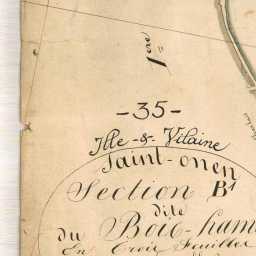 1ere
-35-
Ille-&-Vilaine
Saint-onen
Section B1
dite
du Bois-ham
En Trois Feuilles